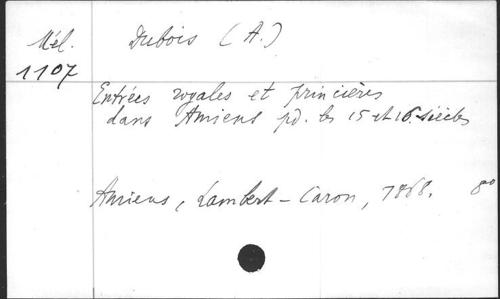 Mél. Dubois (A.)
1107
Entrées royales et princières
dans Amiens pd. les 15 et 16. siècles
Amiens, Lambert-Caron, 1868. 8°